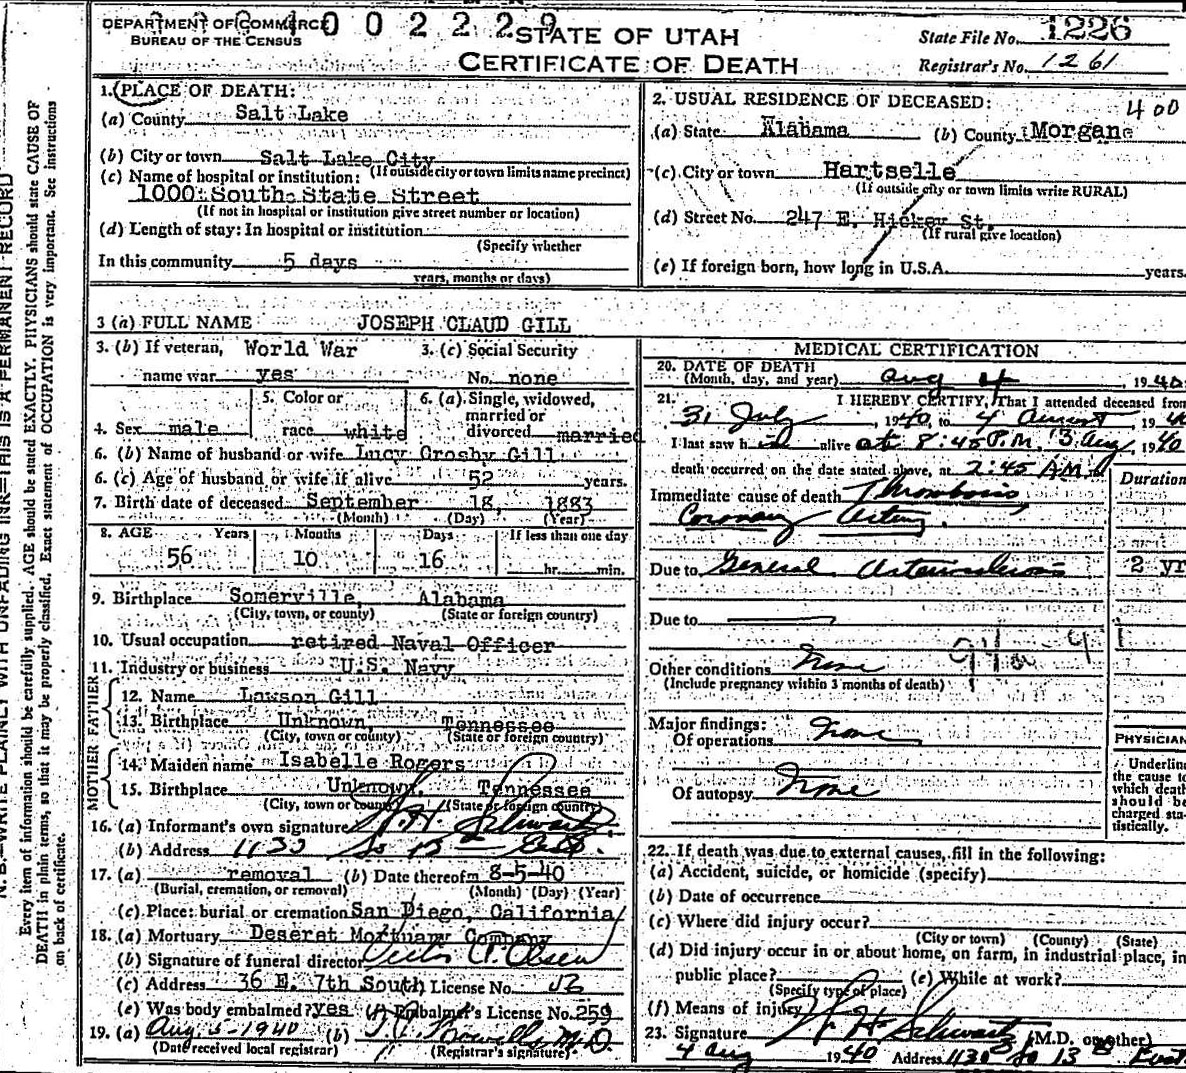 DEPARTMENT OF COMMERCE
BUREAU OF THE CENSUS
1002229
STATE OF UTAH
CERTIFICATE OF DEATH
State File No. 1226
Registrar's No. 1261
1. PLACE OF DEATH:
(a) County Salt Lake
(b) City or town Salt Lake City
(If outside city or town limits name precinct)
(c) Name of hospital or institution:
1000 South State Street
(If not in hospital or institution give street number or location)
(d) Length of stay: In hospital or institution
(Specify whether
In this community 5 days
years, months or days)
2. USUAL RESIDENCE OF DECEASED:
400
(a) State Alabama (b) County Morgane
(c) City or town Hartselle
(If outside city or town limits write RURAL)
(d) Street No. 247 E. Hicker St.
(If rural give location)
(e) If foreign born, how long in U.S.A. years.
3 (a) FULL NAME JOSEPH CLAUD GILL
3. (b) If veteran, World War
name war yes
3. (c) Social Security
No. none
4. Sex male
5. Color or
race white
6. (a) Single, widowed,
married or
divorced married
6. (b) Name of husband or wife Lucy Crosby Gill
6. (c) Age of husband or wife if alive 52 years.
7. Birth date of deceased September 18, 1883
(Month) (Day) (Year)
8. AGE Years Months Days If less than one day
56 10 16 hr. min.
9. Birthplace Somerville, Alabama
(City, town, or county) (State or foreign country)
10. Usual occupation retired Naval Officer
11. Industry or business U.S. Navy
FATHER
12. Name Lawson Gill
13. Birthplace Unknown Tennessee
(City, town or county) (State or foreign country)
MOTHER
14. Maiden name Isabelle Rogers
15. Birthplace Unknown, Tennessee
(City, town or county) (State or foreign country)
16. (a) Informant's own signature W.H. Schwartz
(b) Address 1130 So 13th East.
17. (a) removal (b) Date thereof 8-5-40
(Burial, cremation, or removal) (Month) (Day) (Year)
(c) Place: burial or cremation San Diego, California
18. (a) Mortuary Deseret Mortuary Company
(b) Signature of funeral director
(c) Address 36 E. 7th South License No.
(e) Was body embalmed? yes (f) Embalmer's License No. 259
19. (a) Aug 5-1940 (b) M.D.
(Date received local registrar) (Registrar's signature)
MEDICAL CERTIFICATION
20. DATE OF DEATH
(Month, day, and year) Aug 4, 1940
21. I HEREBY CERTIFY, That I attended deceased from
31 July, 1940, to 4 August 1940
I last saw him alive at 8:45 P.M. 3 Aug, 1940
death occurred on the date stated above, at 2:45 AM
Immediate cause of death Thrombosis,
Coronary artery.
Duration
Due to General Arteriosclerosis 2 yr
Due to
Other conditions None
(Include pregnancy within 3 months of death)
Major findings:
Of operations None
Of autopsy None
PHYSICIAN
Underline
the cause to
which death
should be
charged sta-
tistically.
22. If death was due to external causes, fill in the following:
(a) Accident, suicide, or homicide (specify)
(b) Date of occurrence
(c) Where did injury occur?
(City or town) (County) (State)
(d) Did injury occur in or about home, on farm, in industrial place, in
public place? (e) While at work?
(Specify type of place)
(f) Means of injury
23. Signature W H Schwartz (M.D. or other)
4 Aug 1940 Address 1130 So 13 East
N.B.—WRITE PLAINLY WITH UNFADING INK—THIS IS A PERMANENT RECORD
Every item of information should be carefully supplied. AGE should be stated EXACTLY. PHYSICIANS should state CAUSE OF
DEATH in plain terms, so that it may be properly classified. Exact statement of OCCUPATION is very important. See instructions
on back of certificate.